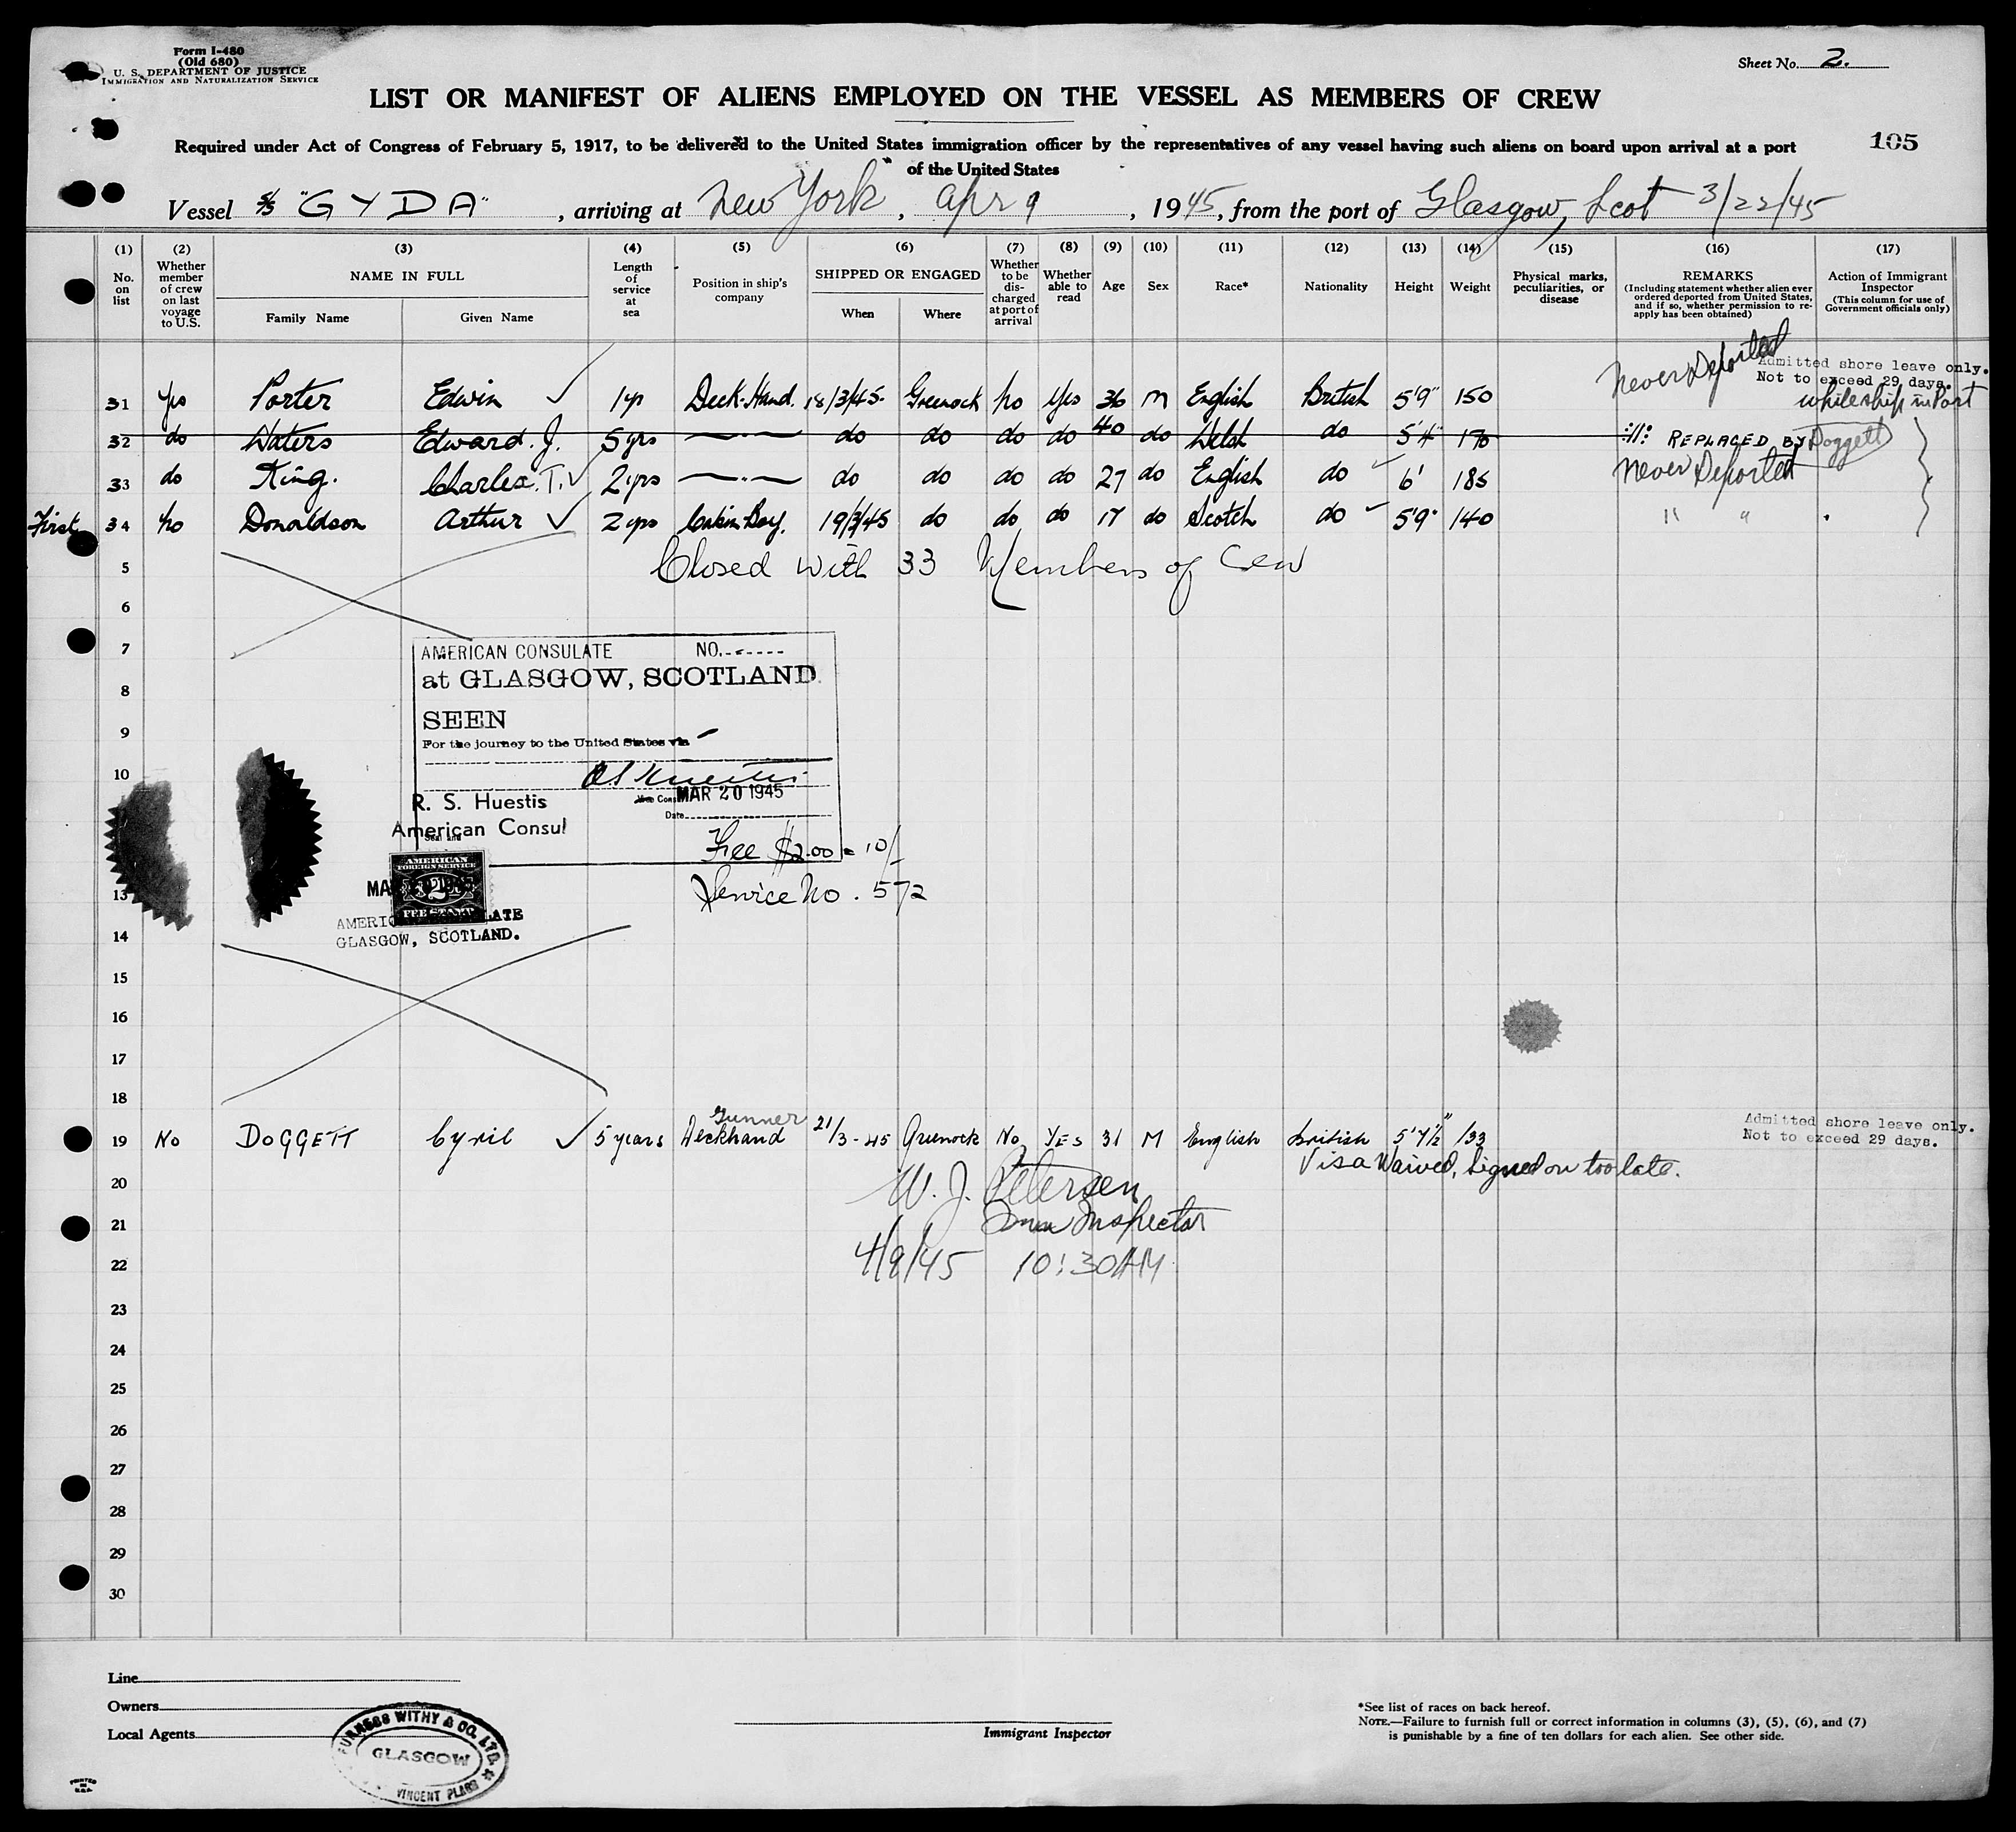 Form I-480
(Old 680)
U. S. DEPARTMENT OF JUSTICE
IMMIGRATION AND NATURALIZATION SERVICE
Sheet No. 2.
LIST OR MANIFEST OF ALIENS EMPLOYED ON THE VESSEL AS MEMBERS OF CREW
Required under Act of Congress of February 5, 1917, to be delivered to the United States immigration officer by the representatives of any vessel having such aliens on board upon arrival at a port
of the United States
105
Vessel S/S "GYDA", arriving at New York, Apr 9, 1945, from the port of Glasgow, Scot 3/22/45
(1) (2) (3) (4) (5) (6) (7) (8) (9) (10) (11) (12) (13) (14) (15) (16) (17)
No. on list
Whether member of crew on last voyage to U.S.
NAME IN FULL
Family Name Given Name
Length of service at sea
Position in ship's company
SHIPPED OR ENGAGED
When Where
Whether to be discharged at port of arrival
Whether able to read
Age
Sex
Race*
Nationality
Height
Weight
Physical marks, peculiarities, or disease
REMARKS
(Including statement whether alien ever ordered deported from United States, and if so, whether permission to re-apply has been obtained)
Action of Immigrant Inspector
(This column for use of Government officials only)
31 Yes Porter Edwin ✓ 1yr Deck-Hand. 18/3/45. Greenock No Yes 36 M English British 5'9" 150 Never Deported Admitted shore leave only. Not to exceed 29 days. while ship in Port
32 do Waters Edward. J. 5 yrs —"— do do do do 40 do Welsh do 5'4" 170 REPLACED BY Doggett
33 do King. Charles. T. ✓ 2yrs —"— do do do do 27 do English do ✓ 6' 185 Never Deported
First 34 No Donaldson Arthur ✓ 2 yrs Cabin-Boy. 19/3/45 do do do 17 do Scotch do ✓ 5'9" 140 " "
5 Closed with 33 Members of Crew
6
7
AMERICAN CONSULATE NO.
8
at GLASGOW, SCOTLAND
SEEN
9
For the journey to the United States via
10
R. S. Huestis
Vice Consul MAR 20 1945
American Consul
Date
Seal and
Fee $2.00 = 10/-
AMERICAN
FOREIGN SERVICE
2
FEE STAMP
13
Service No. 572
GLASGOW, SCOTLAND.
14
15
16
17
18
19 No DOGGETT Cyril ✓ 5 years Gunner Deckhand 21/3-45 Greenock No YES 31 M English British 5'7½" 133 Admitted shore leave only. Not to exceed 29 days.
Visa Waived, Signed on too late.
20 W. J. Petersen
21 Imm Inspector
22 4/9/45 10:30AM
23
24
25
26
27
28
29
30
Line
Owners
Local Agents
FURNESS WITHY & CO. LTD.
GLASGOW
VINCENT PLACE
Immigrant Inspector
*See list of races on back hereof.
NOTE.—Failure to furnish full or correct information in columns (3), (5), (6), and (7)
is punishable by a fine of ten dollars for each alien. See other side.
PRINTED
IN
U.S.A.